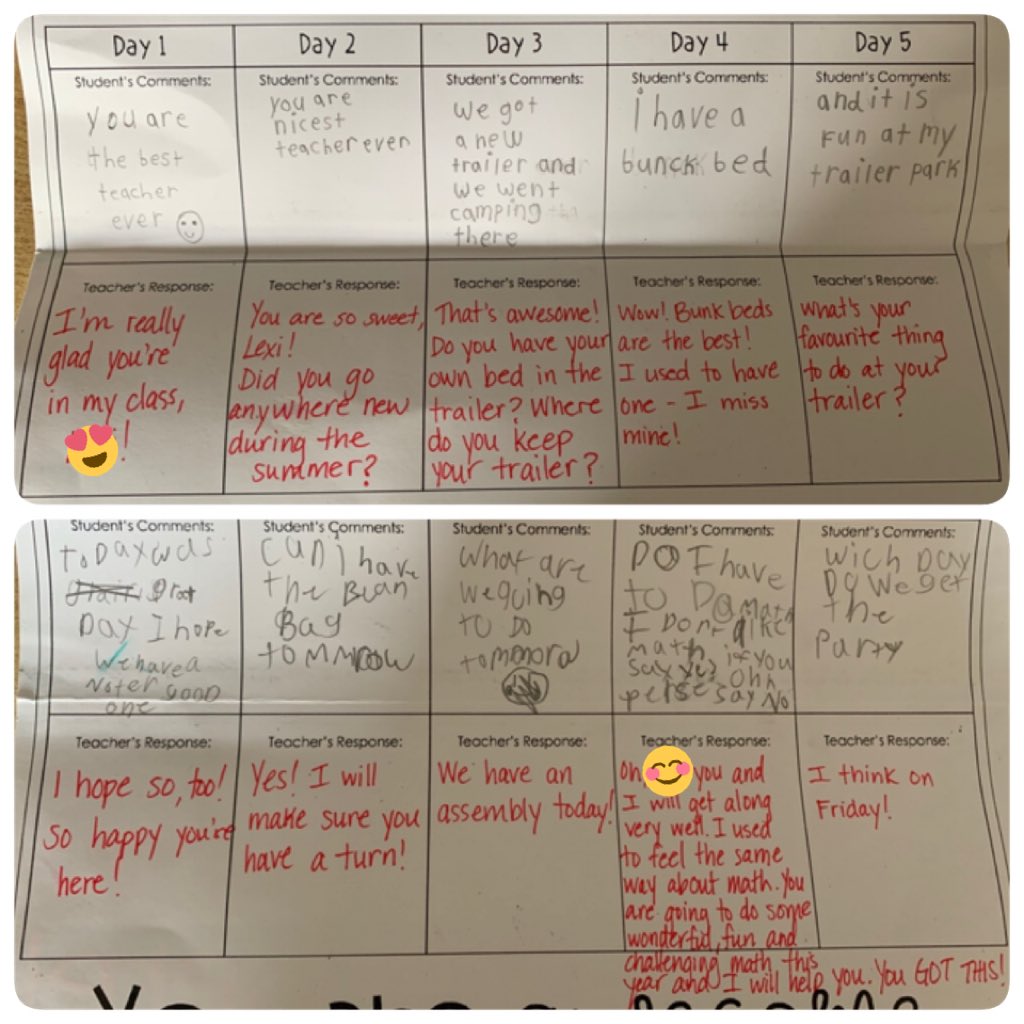 Day 1
Student's Comments:
you are
the best
teacher
ever
Teacher's Response:
I'm really
glad you're
in my class,
!
Day 2
Student's Comments:
you are
nicest
teacher ever
Teacher's Response:
You are so sweet,
Lexi!
Did you go
anywhere new
during the
summer?
Day 3
Student's Comments:
we got
a new
trailer and
we went
camping
there
Teacher's Response:
That's awesome!
Do you have your
own bed in the
trailer? Where
do you keep
your trailer?
Day 4
Student's Comments:
i have a
bunck bed
Teacher's Response:
Wow! Bunk beds
are the best!
I used to have
one - I miss
mine!
Day 5
Student's Comments:
and it is
Fun at my
trailer park
Teacher's Response:
What's your
favourite thing
to do at your
trailer?
Student's Comments:
toDay was
grat
Day I hope
we have a
Noter good
one
Teacher's Response:
I hope so, too!
So happy you're
here!
Student's Comments:
Can I have
the Bean
Bag
tommrow
Teacher's Response:
Yes! I will
make sure you
have a turn!
Student's Comments:
What are
we going
to Do
Teacher's Response:
We have an
assembly today!
Student's Comments:
DO I have
to Do Math
I Don't like
math if you
say yes Ohh
say No
Teacher's Response:
Oh, you and
I will get along
very well. I used
to feel the same
way about math. You
are going to do some
wonderful, fun and
challenging math this
year and I will help you. You GOT THIS!
Student's Comments:
Wich Day
Do We get
the
Party
Teacher's Response:
I think on
Friday!